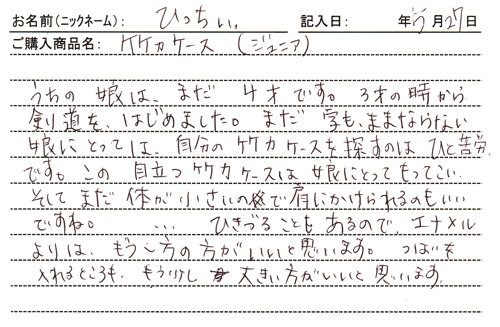 お名前(ニックネーム): ひっちぃ. 記入日: 年 5月27日
ご購入商品名: ケケカケース (ジュニア)
うちの 娘は、まだ 4才です。3才の時から
剣道を、はじめました。まだ 字も、ままならない
娘にとっては、自分の ケケカケースを 探すのは ひと苦労
です。この 目立つ ケケカケースは 娘にとって もってこい.
そして まだ 体が 小さいので 肩にかけられるのもいい
ですね。 … ひきづることも あるので、エナメル
よりは、もう 方の方がいいと思います。つばを
入れるところも、もう少し 大きい方がいいと 思います.